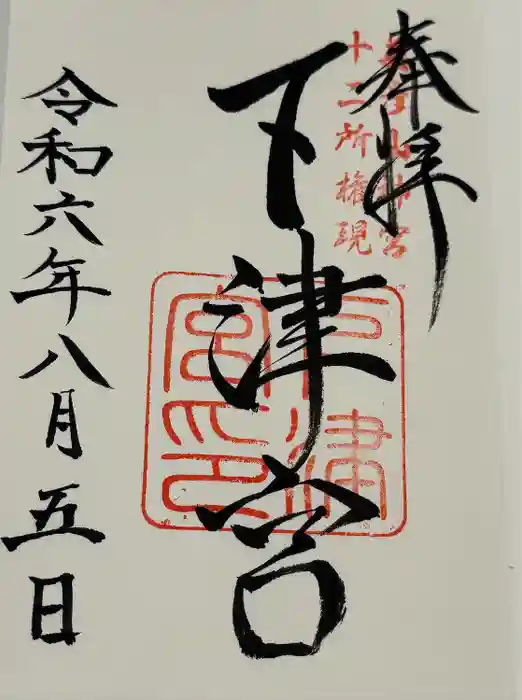 奉拝
十二所権現
下津宮
令和六年八月五日
下津
宮印